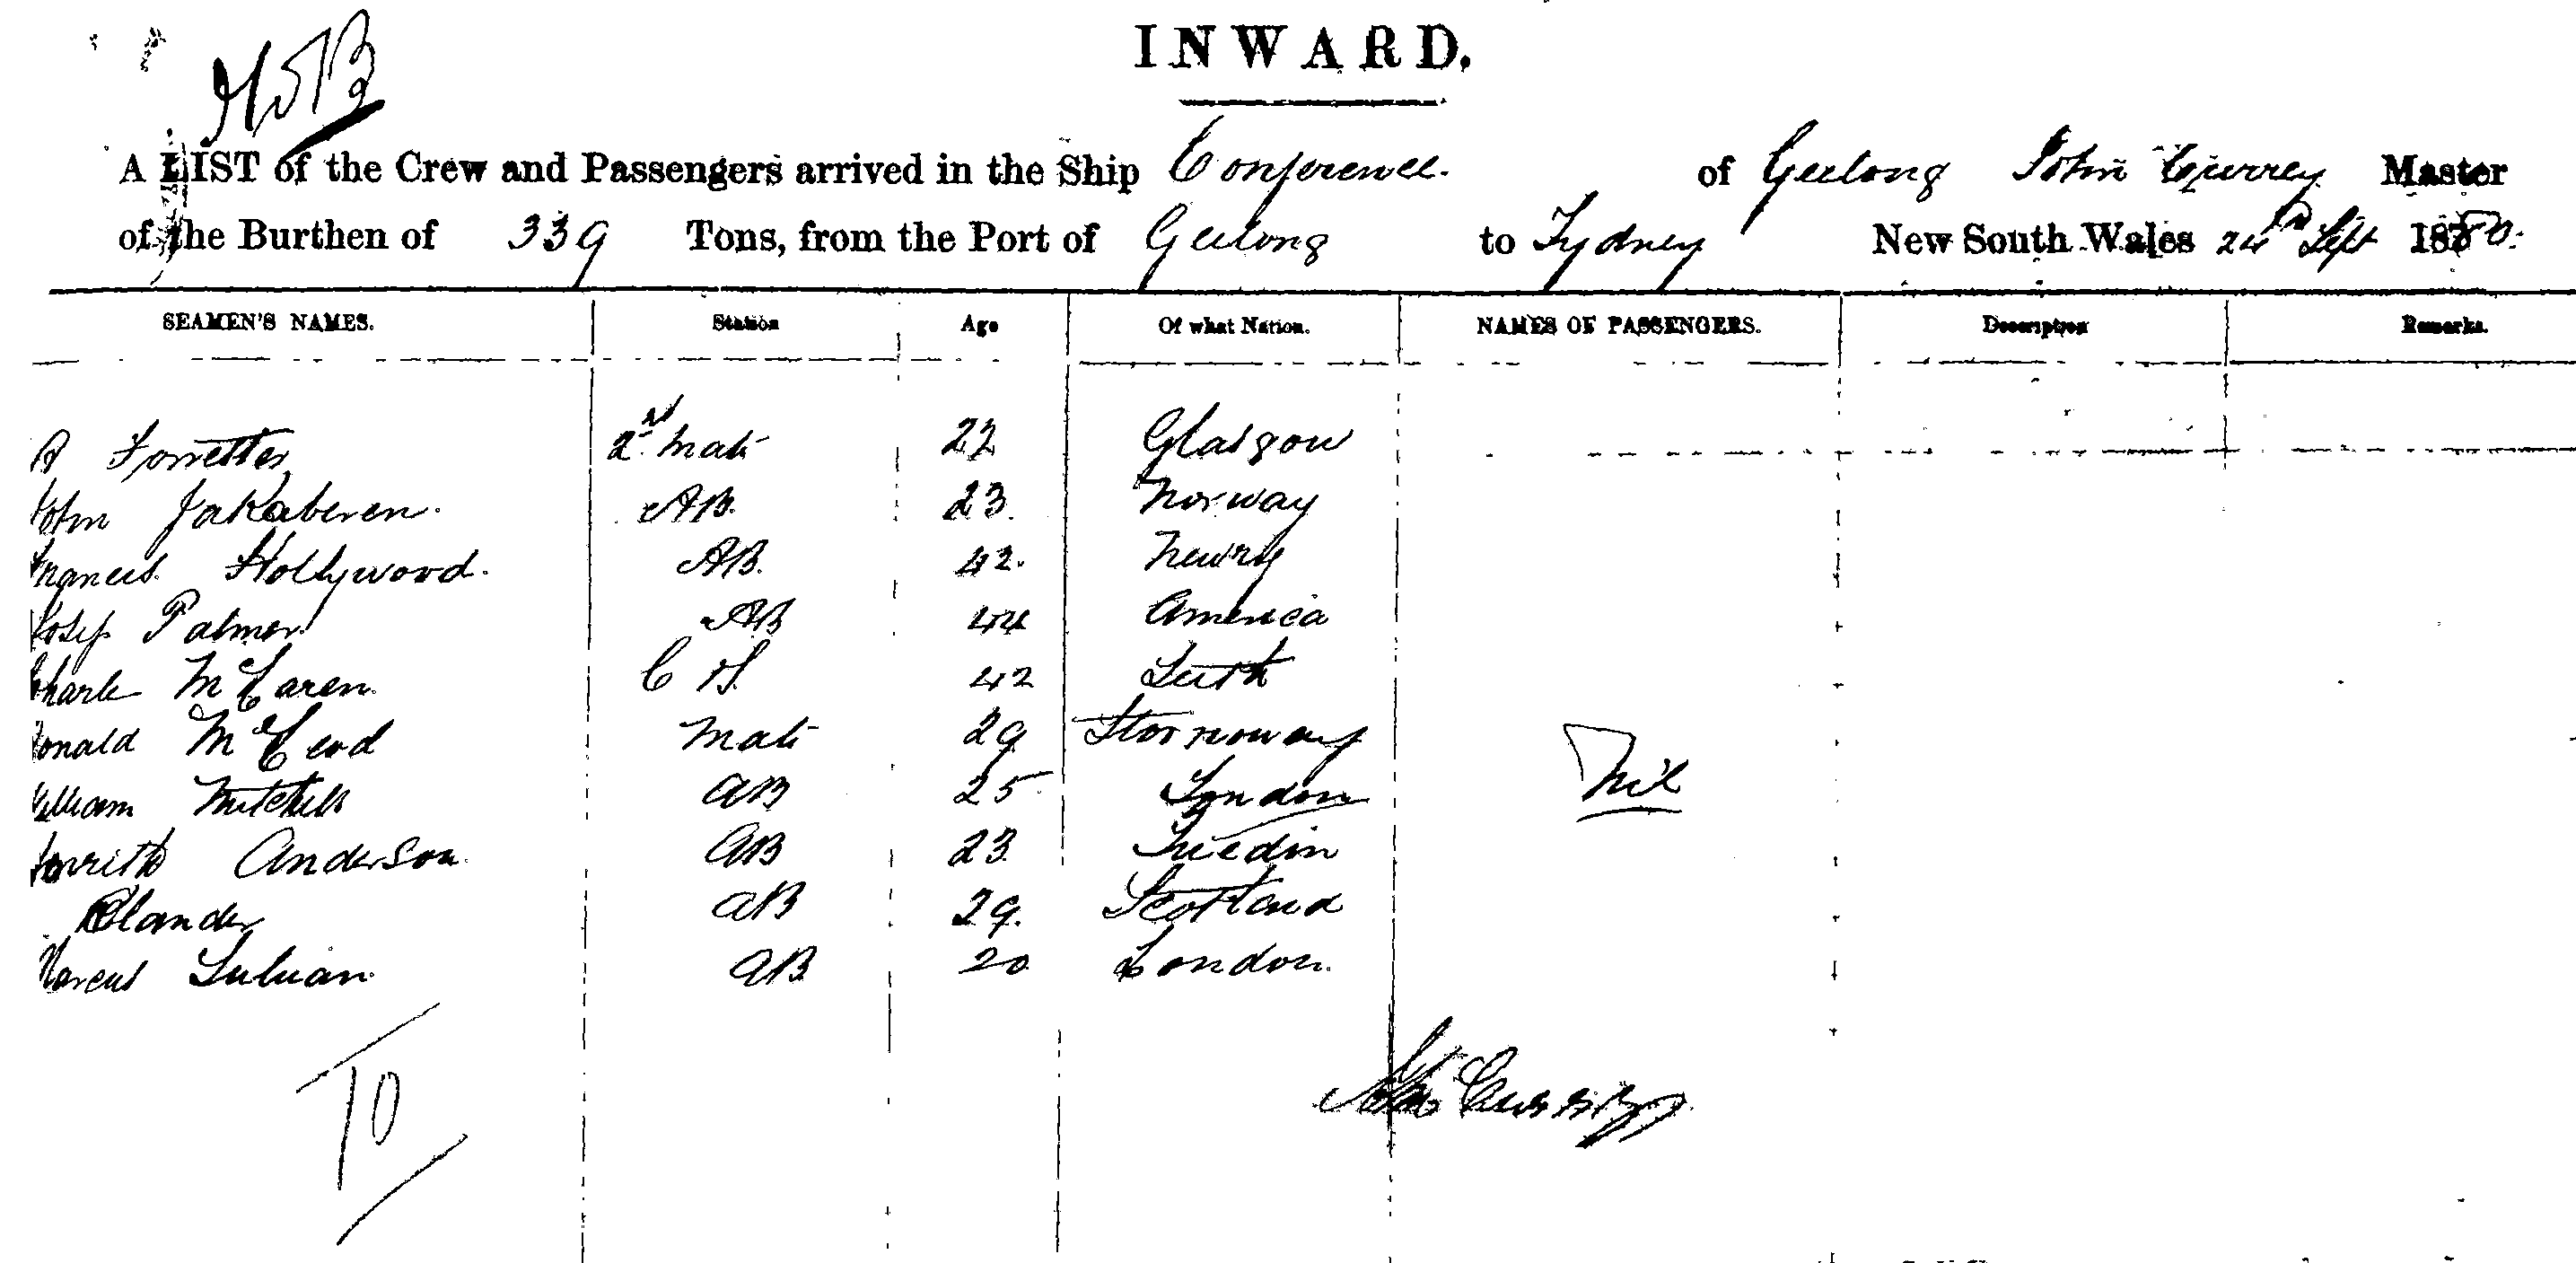 INWARD.
A LIST of the Crew and Passengers arrived in the Ship Conference of Geelong John Currey Master
of the Burthen of 339 Tons, from the Port of Geelong to Sydney New South Wales 24th Sept 1880.
SEAMEN'S NAMES. Station Age Of what Nation. NAMES OF PASSENGERS. Description Remarks.
A Forrester 2nd Mate 22 Glasgow
John Jakaberen. AB. 23. Norway
Francis Hollywood. AB. 42. Newry
Josep Palmer AB 44 America
Charle McLaren. C S. 42 Leith
Donald McLeod Mate 29 Stornoway
William Mitchell AB 25 London Nil
Anderson AB 23 Sweedin
AB 29. Scotland
Marcus AB 20 London.
John Currey
10